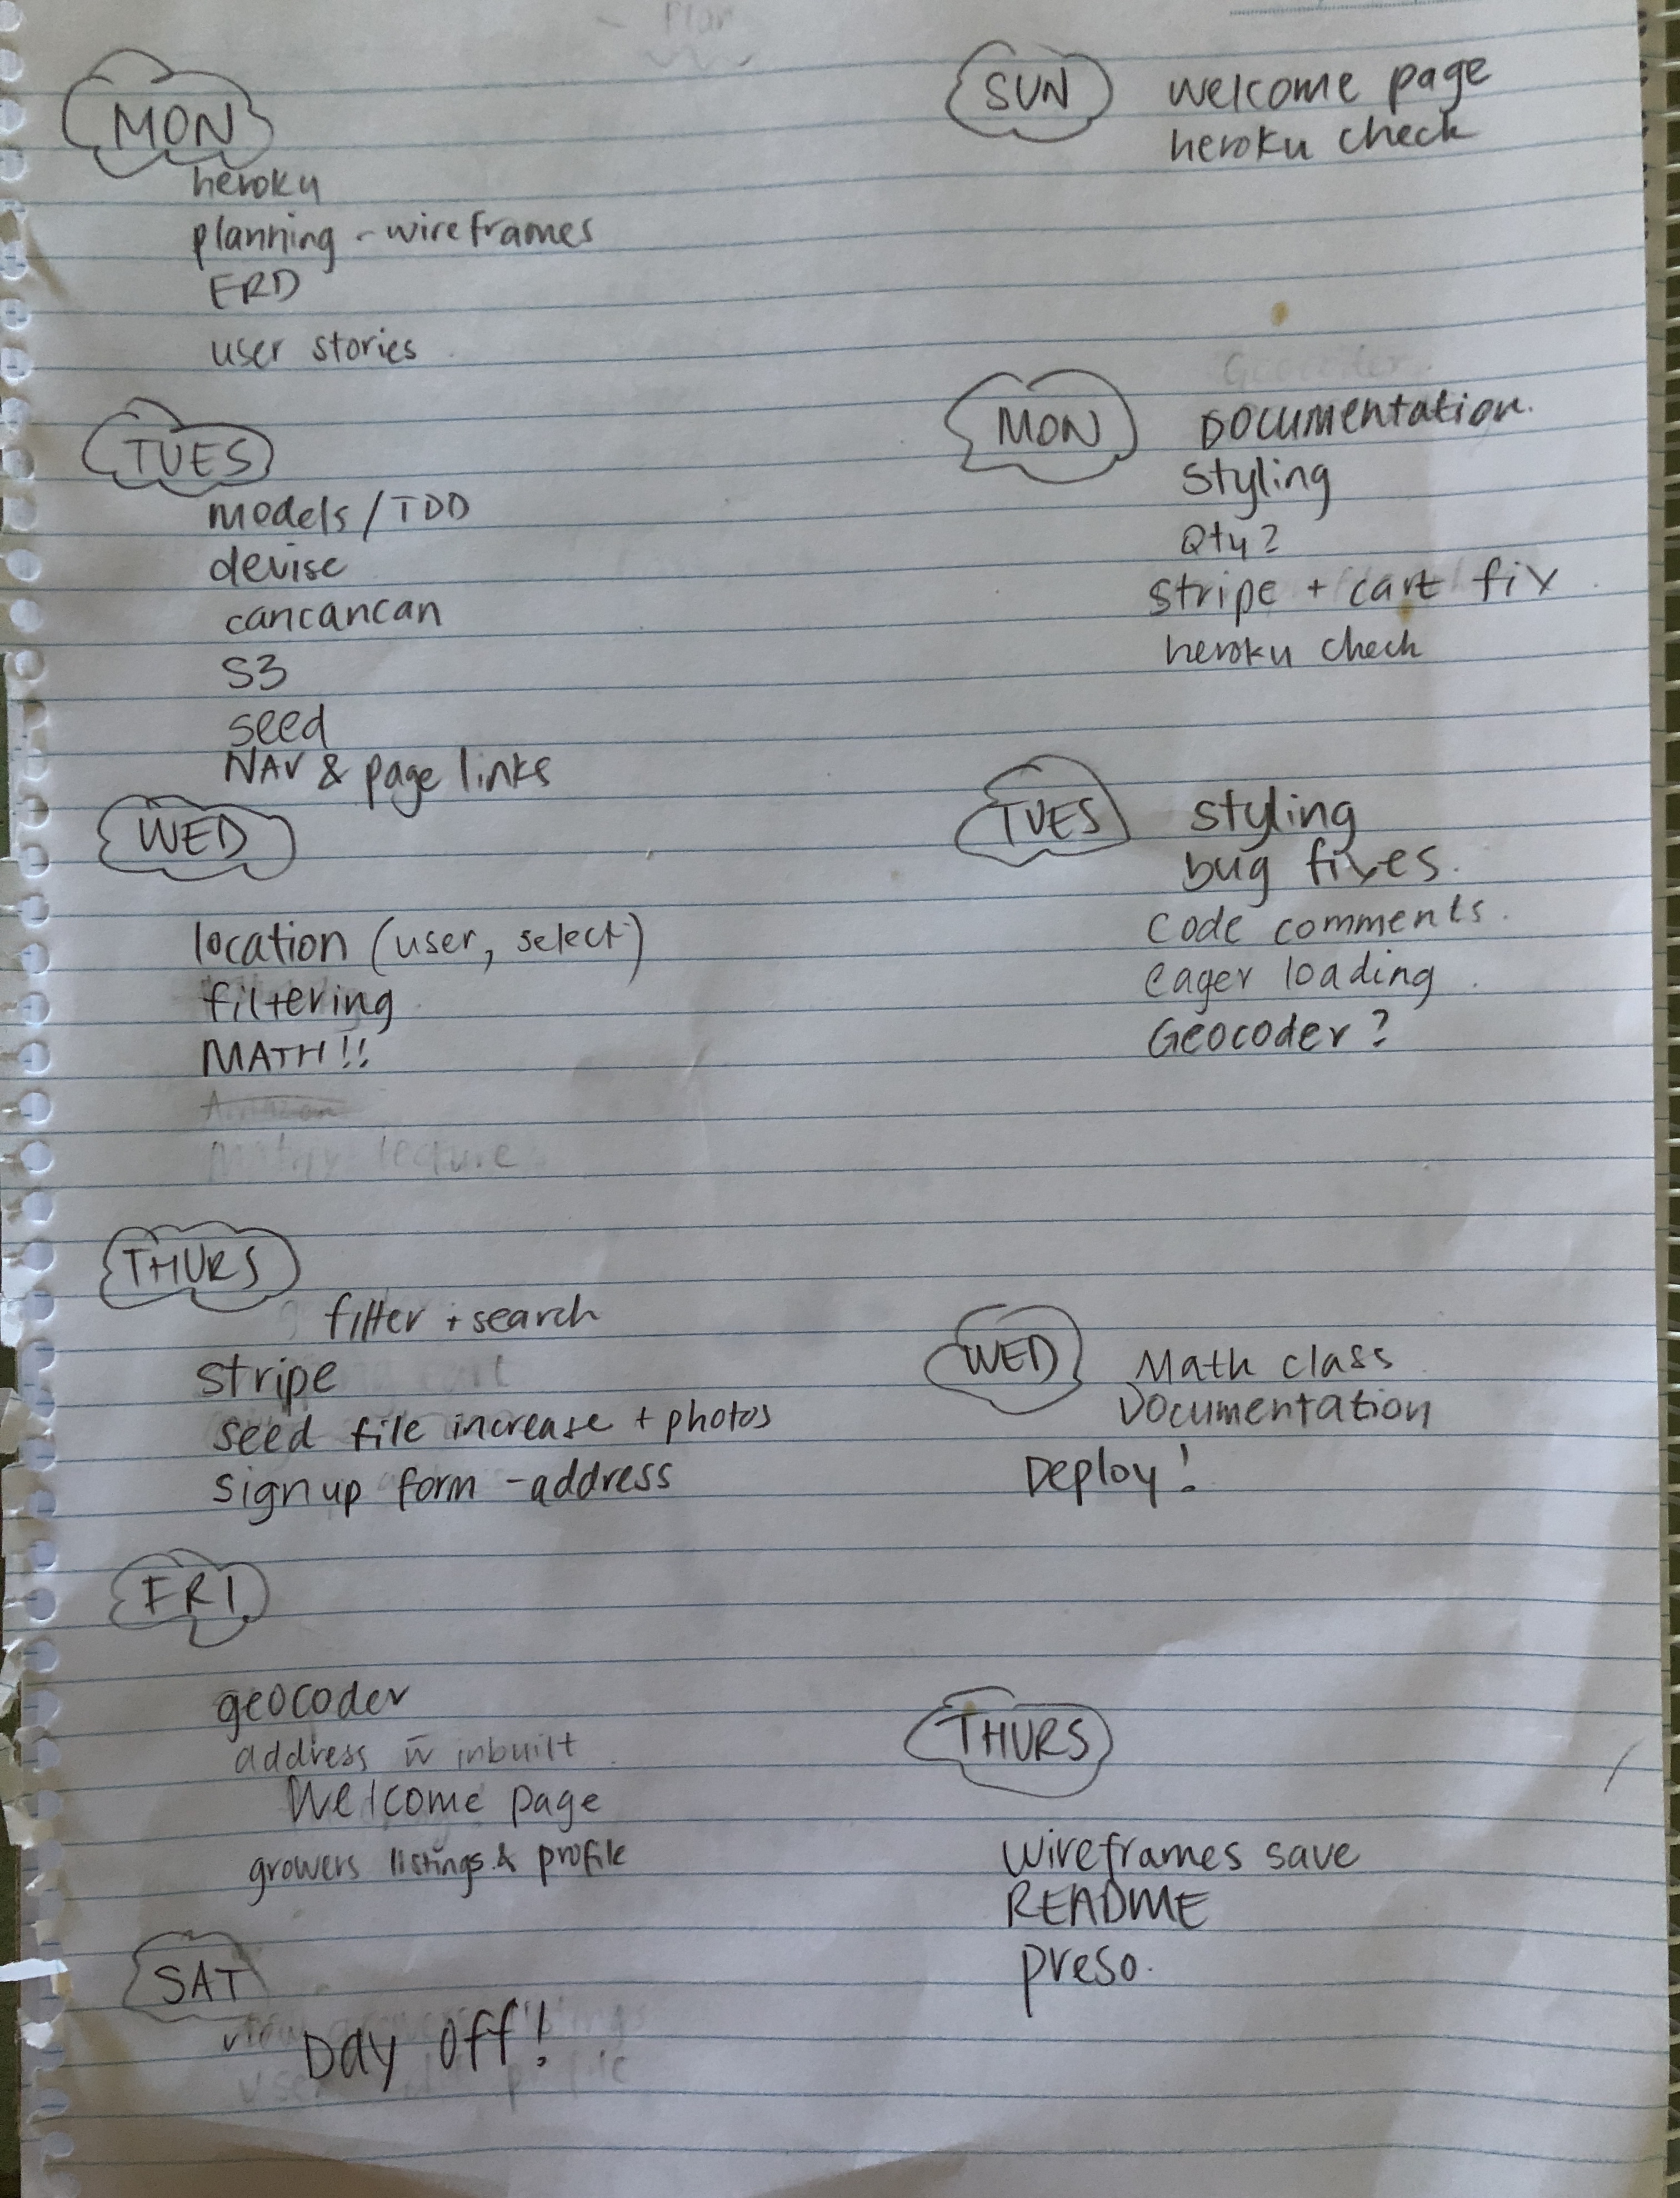 MON
heroku
planning - wireframes
ERD
user stories
TUES
models/TDD
devise
cancancan
S3
seed
NAV & page links
WED
location (user, select)
filtering
MATH!!
lecture
THURS
filter + search
stripe
seed file increase + photos
signup form - address
FRI
geocoder
address w inbuilt
Welcome page
growers listings & profile
SAT
Day off!
SUN
welcome page
heroku check
Geocoder
MON
Documentation.
Styling
Qty?
stripe + cart fix
heroku check
TUES
Styling
bug fixes.
Code comments.
eager loading.
Geocoder?
WED
Math class
Documentation
Deploy!
THURS
wireframes save
README
preso.